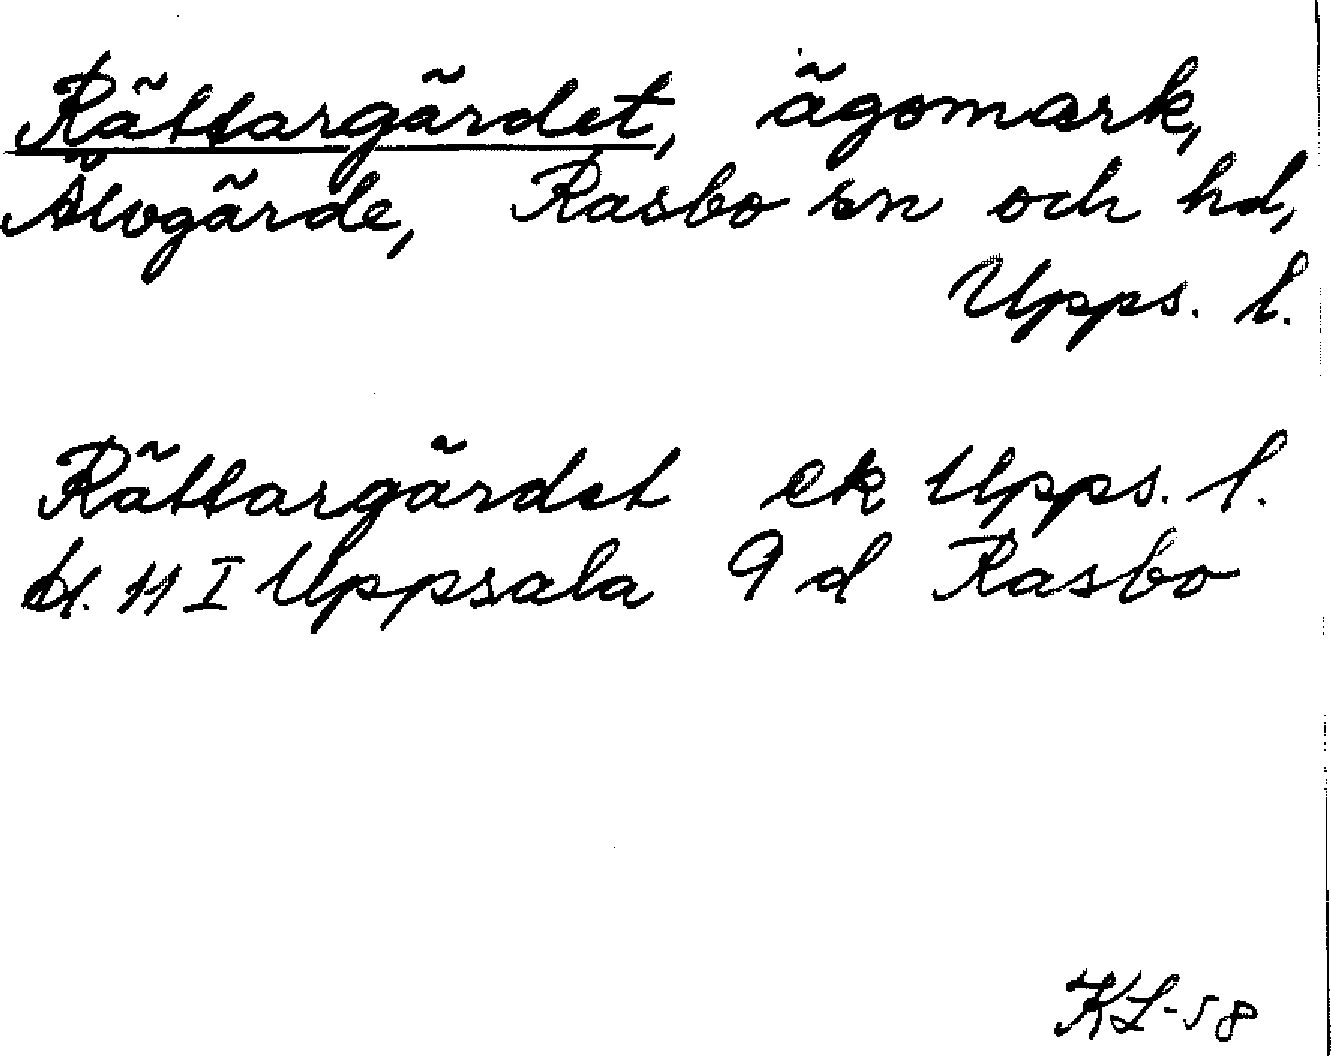 Rättargärdet, ägomark,
Älvgärde, Rasbo sn och hd,
Upps. l.
Rättargärdet ek Upps. l.
bl. 11 I Uppsala 9 d Rasbo
KL-58